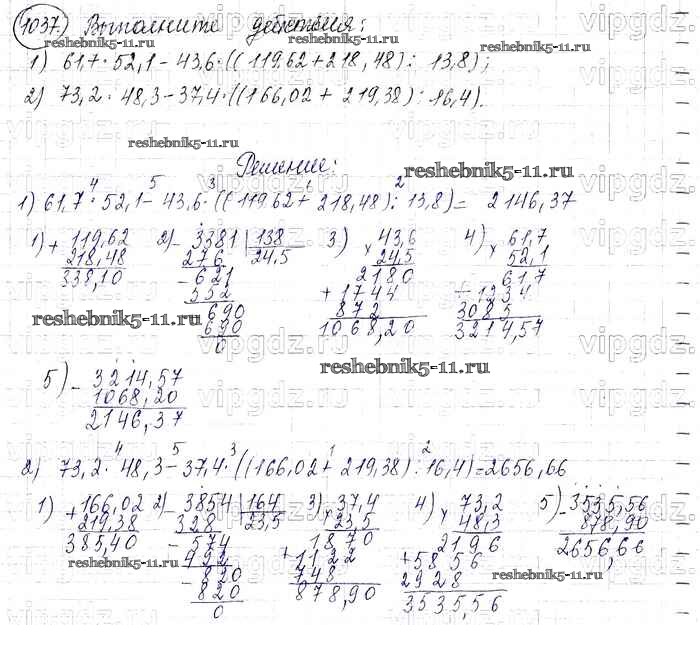 1037) Выполните действия:
1) 61,7 · 52,1 - 43,6 · ((119,62 + 218,48) : 13,8);
2) 73,2 · 48,3 - 37,4 · ((166,02 + 219,38) : 16,4).
Решение:
1) 61,7 · 52,1 - 43,6 · ((119,62 + 218,48) : 13,8) = 2146,37
4 5 3 1 2
1) + 119,62 2) - 3381 | 138 3) × 43,6 4) × 61,7
218,48 276 24,5 24,5 52,1
338,10 - 621 2180 617
552 + 1744 + 1234
690 872 3085
690 1068,20 3214,57
0
5) - 3214,57
1068,20
2146,37
2) 73,2 · 48,3 - 37,4 · ((166,02 + 219,38) : 16,4) = 2656,66
4 5 3 1 2
1) + 166,02 2) - 3854 | 164 3) × 37,4 4) × 73,2 5) - 3535,56
219,38 328 23,5 23,5 48,3 878,90
385,40 - 574 1870 2196 2656,66
492 + 1122 + 5856
- 820 748 2928
820 878,90 3535,56
0
reshebnik5-11.ru
reshebnik5-11.ru
reshebnik5-11.ru
reshebnik5-11.ru
reshebnik5-11.ru
reshebnik5-11.ru
reshebnik5-11.ru
reshebnik5-11.ru
vipgdz.ru